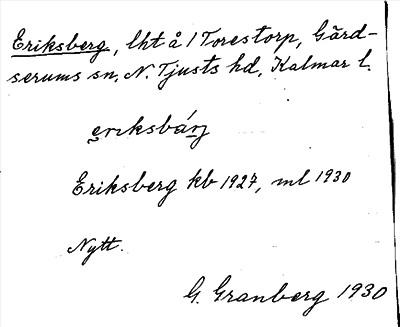 Eriksberg, lht å 1 Torestorp, Gärd-
serums sn, N. Tjusts hd, Kalmar l.
eriksbárj
Eriksberg kb 1927, ml 1930
Nytt.
G. Granberg 1930